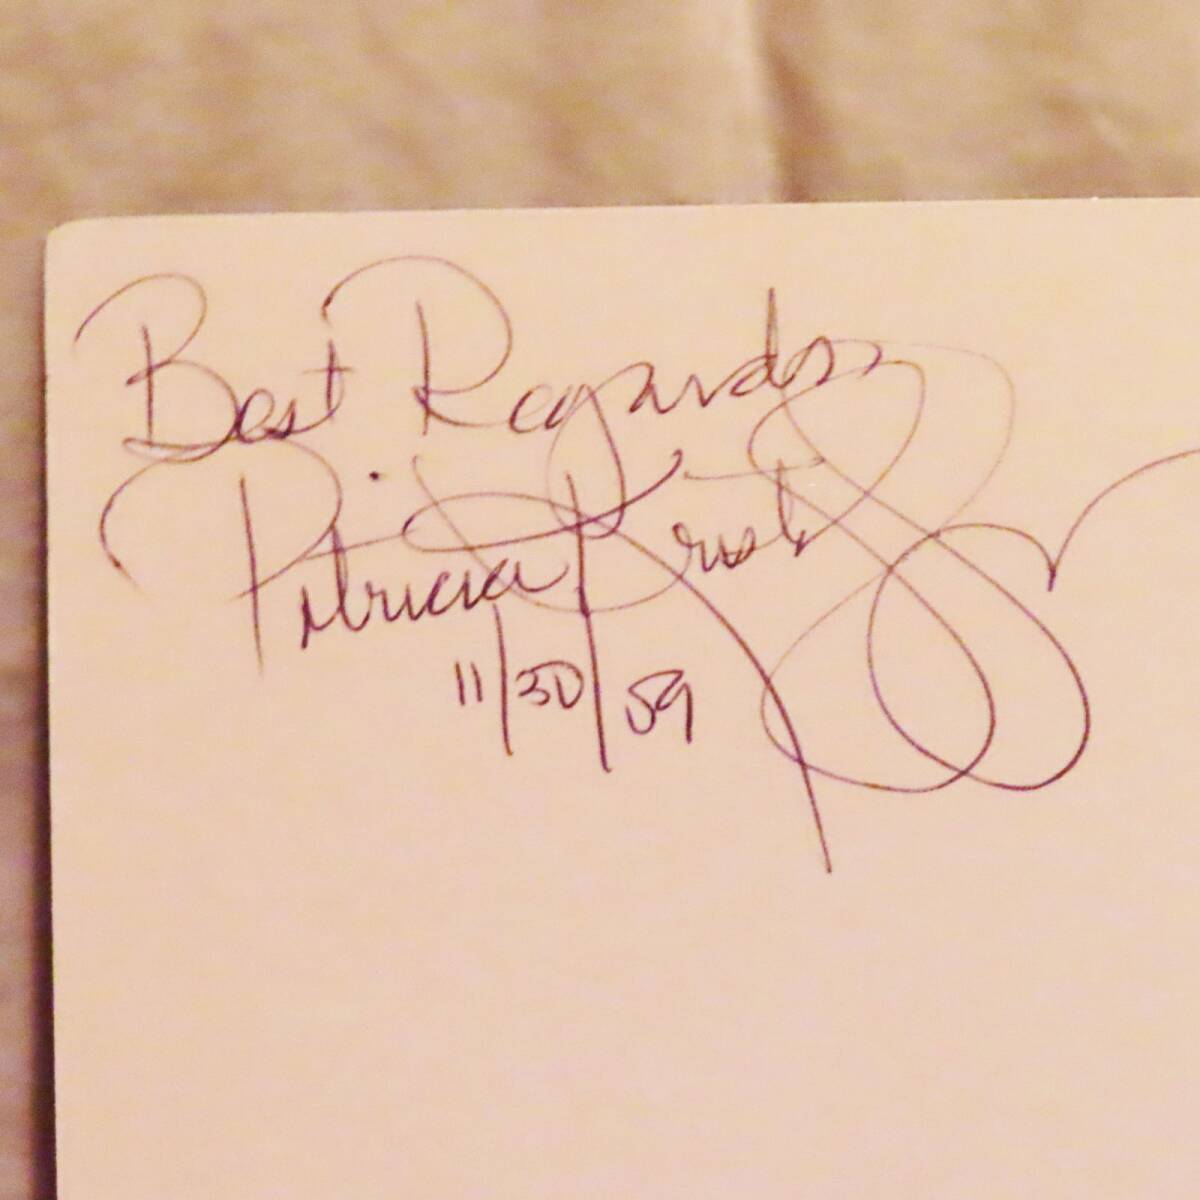 Best Regards
Patricia
11/30/59